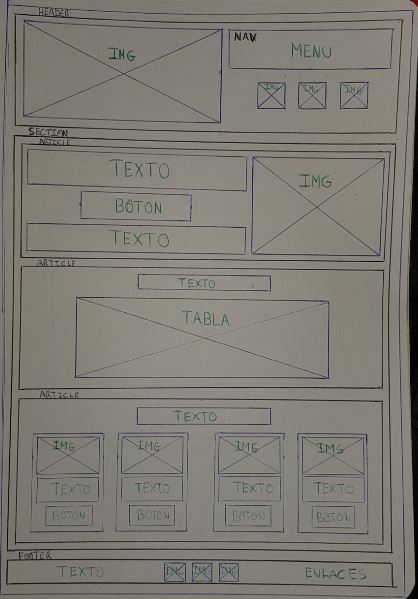 HEADER
IMG
NAV
MENU
IMG IMG IMG
SECTION
ARTICLE
TEXTO
BOTON
TEXTO
IMG
ARTICLE
TEXTO
TABLA
ARTICLE
TEXTO
IMG IMG IMG IMG
TEXTO TEXTO TEXTO TEXTO
BOTON BOTON BOTON BOTON
FOOTER
TEXTO IMG IMG IMG ENLACES